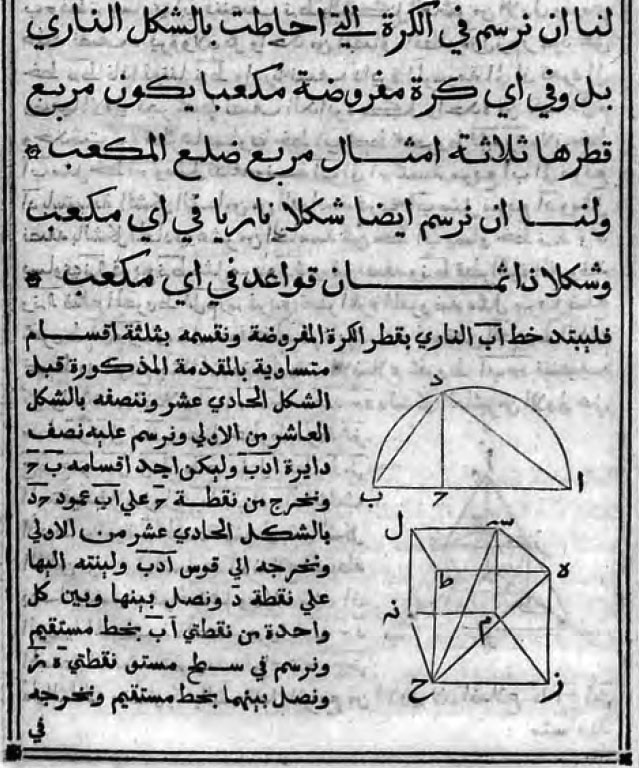 لنا ان نرسم في الكرة التي احاطت بالشكل الناري
بل وفي اي كرة مفروضة مكعبا يكون مربع
قطرها ثلاثة امثـــال مربع ضلع المكعب
ولنـــا ان نرسم ايضا شكلا ناريا في اي مكعب
وشكلا ذا ثمـــان قواعد في اي مكعب
خط اب الناري بقطر الكرة المفروضة ونقسمه بثلثة اقســام
متساوية بالمقدمة المذكورة قبل
الشكل الحادي عشر وننصفه بالشكل
العاشر من الاولي ونرسم عليه نصف
دايرة ادب وليكن احد اقسامه ب ح
ونخرج من نقطــة ح علي اب عمود حد
بالشكــل الحادي عشر مــن الاولي
ونخرجه الي قوس ادب ولينته اليها
علي نقطة د ونصل بينها وبين كل
واحدة من نقطتي اب بخط مستقيم
ونرسم في ســطح مستو نقطتي ه ز
ونصل بينهما بخط مستقيم ونخرجه
في
د
ا
ح
ب
ل
س
ط
ه
ن
م
ح
ز